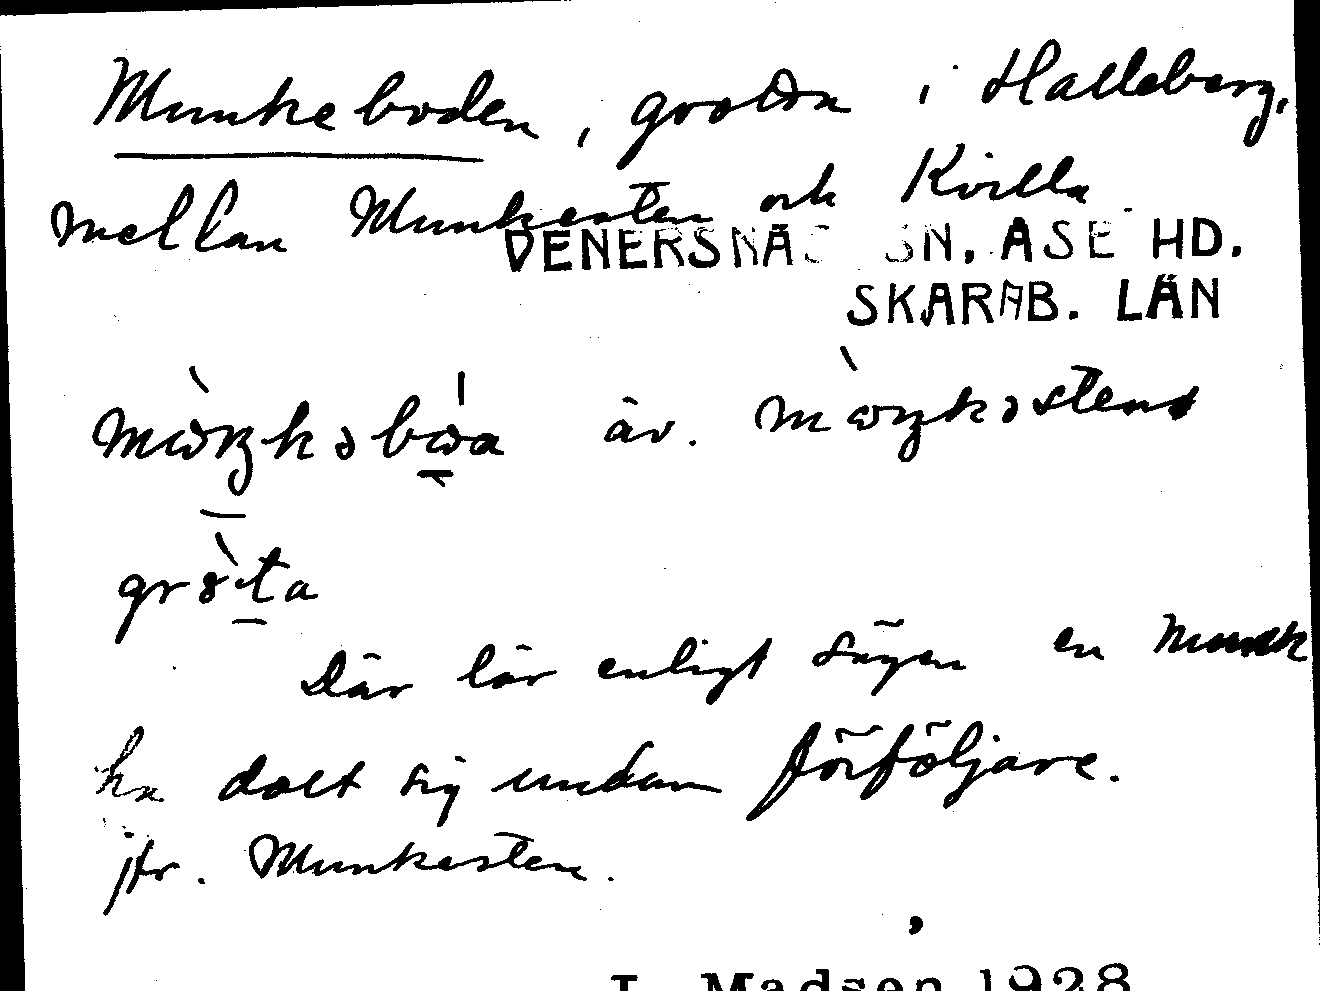 Munkeboden, grotta i Halleberg,
mellan Munkesten och Kvilla.
VENERSNÄS SN. ÅSE HD.
SKARAB. LÄN
äv.
Där lär enligt sägen en munk
ha dolt sig undan förföljare.
jfr. Munkesten.
I. Madsen 1928